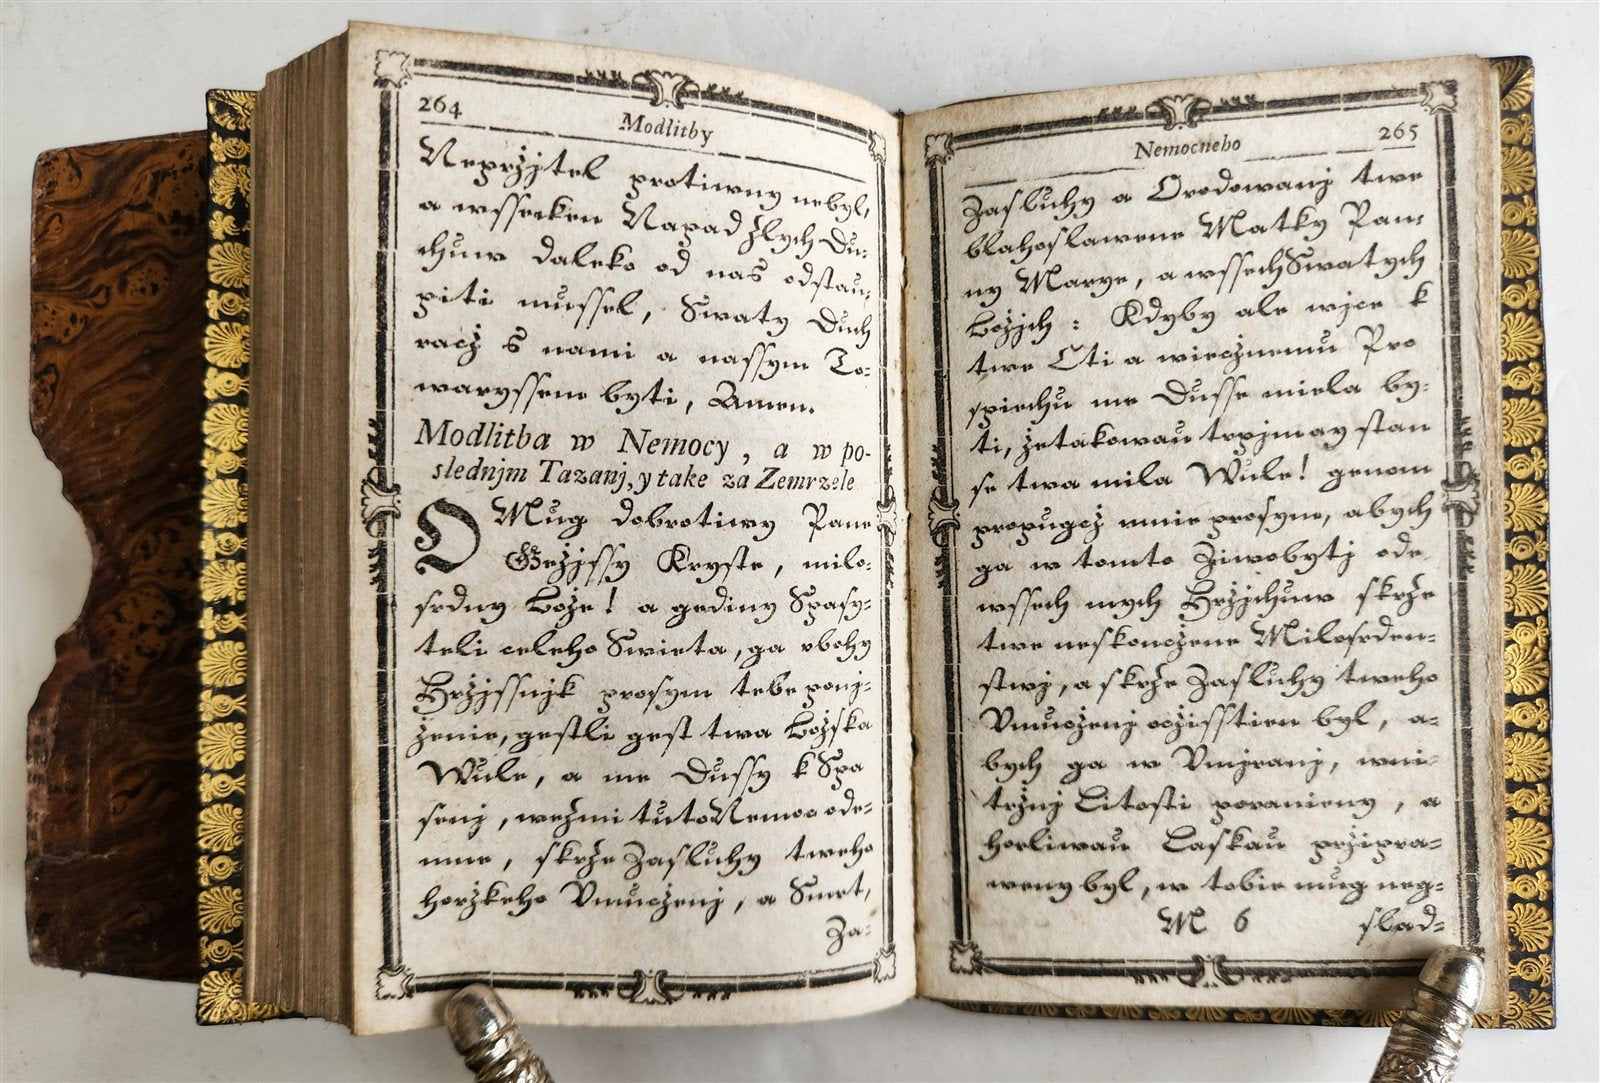 264 Modlitby
Neprzjtel protiwny nebyl,
a wsseckeu Napad Zlych Du-
chuw daleko od nas odstau-
piti mussel, Swaty Duch
racż s nami a nassym To-
waryssem byti, Amen.
Modlitba w Nemocy, a w po-
slednjm Tazanj, y take za Zemrzele
O Mug dobrotiwy Pane
Geżjssy Kryste, milo-
srdny Boże! a gediny Spasy-
teli celeho Swieta, ga vbohy
Hrżjssnjk prosym tebe ponj-
żenie, gestli gest twa Bożska
Wule, a me Dussy k Spa
senj, wezmi tuto Nemoc ode-
mne, skrże Zasluhy tweho
horżkeho Vmucżenj, a Smrt,
Za-
Nemocneho 265
Zasluhy a Orodowanj twe
blahoslawene Matky Pan-
ny Marye, a wssech Swatych
Bożjch: Kdyby ale wjce k
twe Cti a wiecżnemu Pro
spiechu me Dusse miela by-
ti, żetakowau trpjm ay stan
se twa mila Wule! genom
propugcż mnie prosym, abych
ga w tomto Ziwobytj ode
wssech mych Hrżjchuw skrże
twe neskoncżene Milosrden-
stwj, a skrże Zasluhy tweho
Vmucżenj ocżisstien byl, a-
bych ga w Vmjranj, wni-
trżnj Litosti poranieny, a
horliwau Laskau prżipra-
weny byl, w tobie mug neg-
M 6 slad-